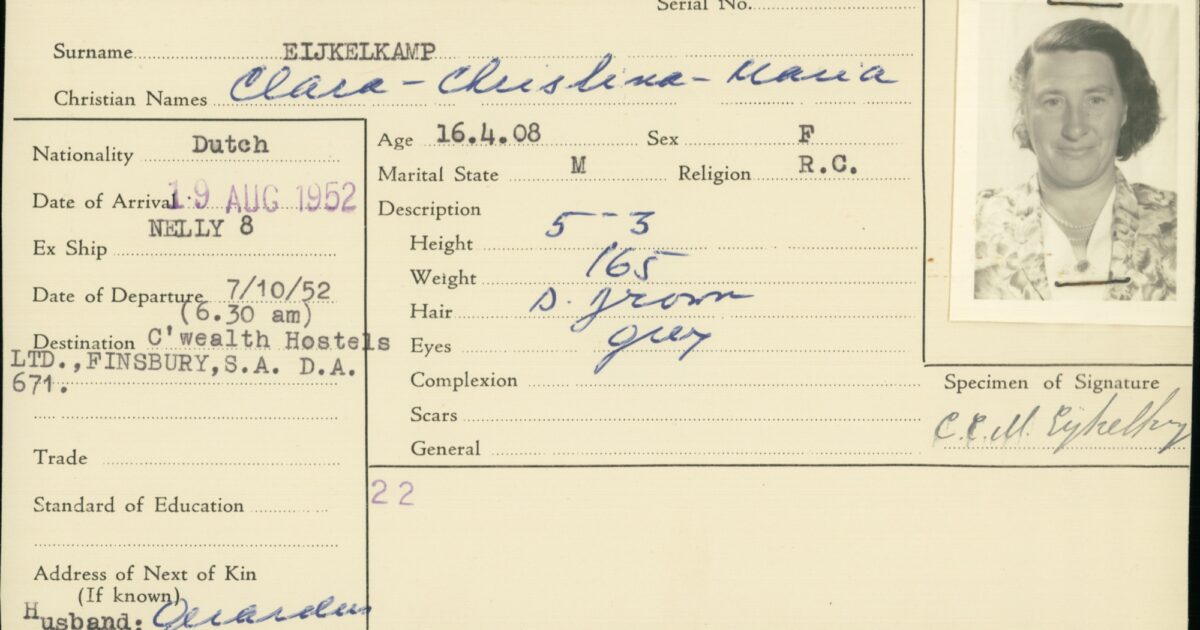 Serial No.
Surname EIJKELKAMP
Christian Names Clara - Christina - Maria
Nationality Dutch
Date of Arrival 19 AUG 1952
Ex Ship NELLY 8
Date of Departure 7/10/52
(6.30 am)
Destination C'wealth Hostels
LTD.,FINSBURY,S.A. D.A.
671.
Trade
Standard of Education
Address of Next of Kin
(If known)
Husband: Gerardus
Age 16.4.08 Sex F
Marital State M Religion R.C.
Description
Height 5-3
Weight 165
Hair D. Brown
Eyes grey
Complexion
Scars
General
22
Specimen of Signature
C.C.M. Eijkelkamp